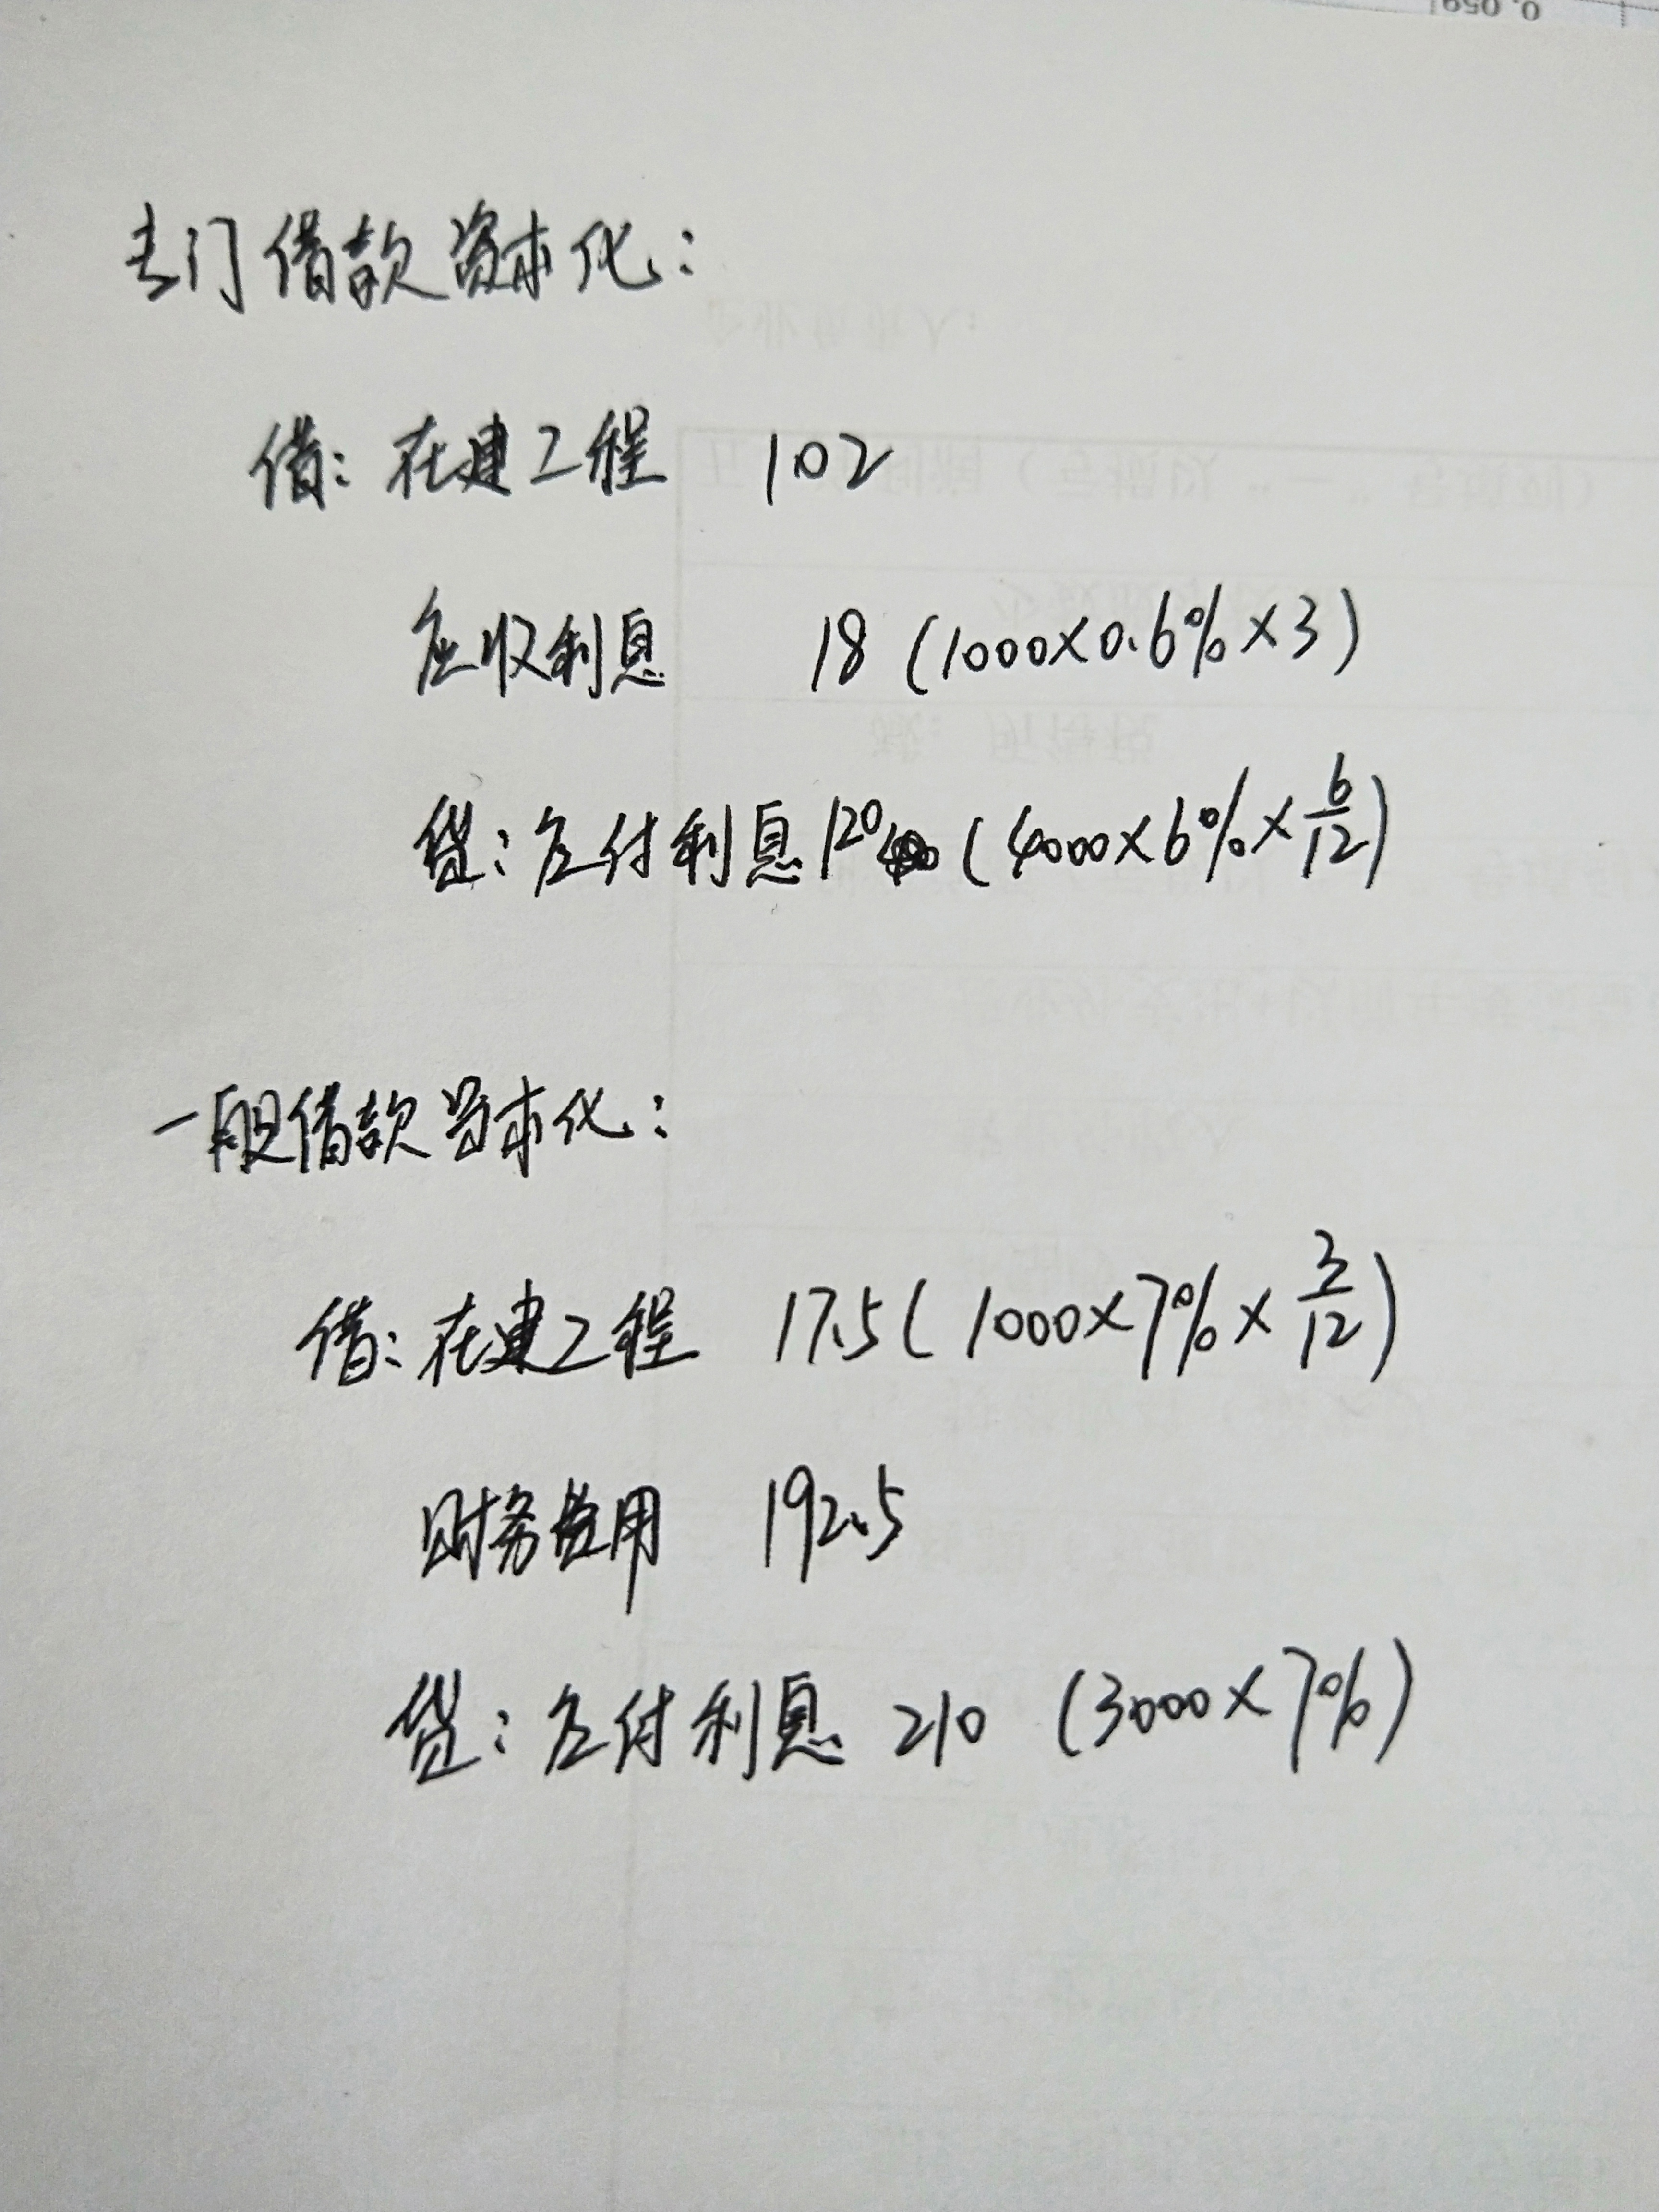 0.059
专门借款资本化:
借: 在建工程 102
应收利息 18 (1000×0.6%×3)
贷: 应付利息 120 (4000×6%×6/12)
一般借款资本化:
借: 在建工程 17.5 (1000×7%×3/12)
财务费用 192.5
贷: 应付利息 210 (3000×7%)